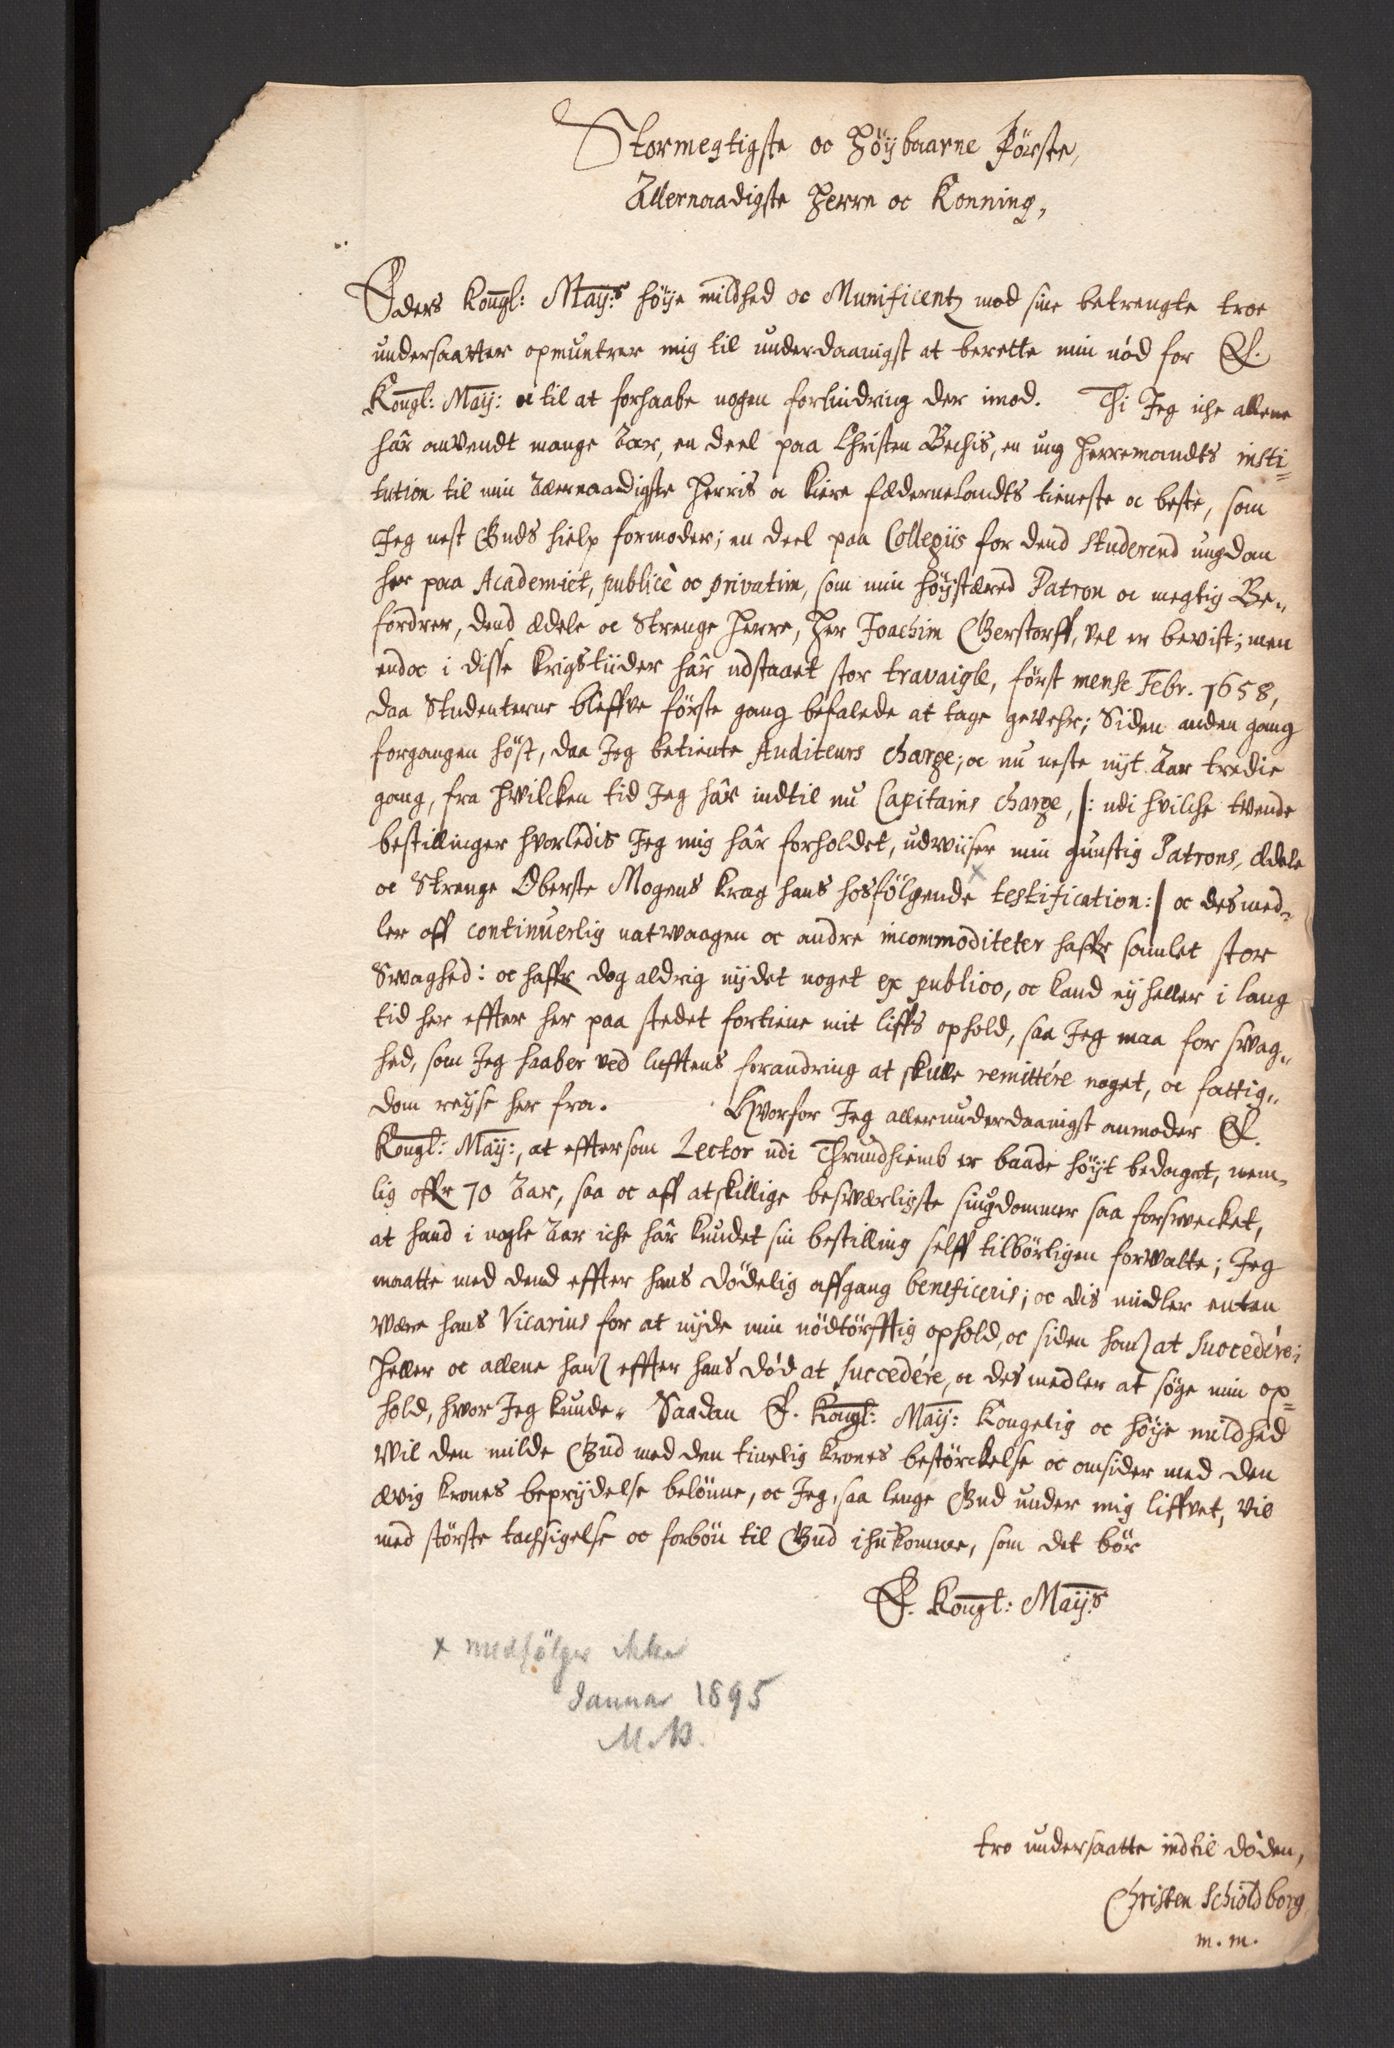 Stormegtigste oc Höÿbaarne Förste,
Allernaadigste Herre oc Konning,
Eders Kongl: Maÿ:s höÿe mildhed oc Munificentz mod sine betrengte troe
undersaatter opmuntrer mig til underdaanigst at berette min nöd for E.
Kongl: Maÿ: oc til at forhaabe nogen forlindring der imod. Thi Jeg iche allene
hâr anvendt mange Aar, en deel paa Christen Bechis, en ung Herremandts insti=
tution til min Allernaadigste Herris oc kiere fædernelandts tieneste oc beste, som
Jeg nest Guds hielp formoder; en deel paa Collegiis for dend studerend ungdom
her paa Academiet, publicè oc privatim, som min höÿstæred Patron oc megtig Be=
fordrer, dend ædele oc Strenge Herre, Her Joachim Gerstorff, vel er bevist; men
endoc i disse krigstiider hâr udstaaet stor travaigle, först mense Febr. 1658,
daa Studenterne bleffve förste gang befalede at tage gevehr; Siden anden gang
forgangen höst, daa Jeg betiente Auditeurs charge; oc nu neste nÿt Aar tredie
gang, fra hvilcken tid Jeg hâr indtil nu Capitains charge, /: udi hvilche tvende
bestillinger hvorledis Jeg mig hâr forholdet, udwiiser min gunstig Patrons, ædele
oc Strenge Oberste Mogens Krag hans hosfölgende x testification :/ oc desmed=
ler aff continuerlig natwaagen oc andre incommoditeter haffr samlet stor
Swaghed: oc haffr dog aldrig nÿdet noget ex publico, oc kand eÿ heller i lang
tid her effter her paa stedet fortiene mit liffs ophold, saa Jeg maa for swag=
hed, som Jeg haaber ved lufftens forandring at skulle remittére noget, oc fattig=
dom reÿse her fra. Hvorfor Jeg allerunderdaanigst anmoder E.
Kongl: Maÿ:, at effter som Lector udi Thrundhiemb er baade höÿt bedaget, nem=
lig offr 70 Aar, saa oc aff atskillige besværligste siugdommer saa forswecket,
at hand i nogle Aar iche hâr kundet sin bestilling selff tilbörligen forwalte; Jeg
maatte med dend effter hans dödelig affgang beneficeris; oc dis midler enten
være hans Vicarius for at nÿde min nödtörfftig ophold, oc siden hanz at succedére;
heller oc allene hanz effter hans död at succedére, oc desmedler at söge min op=
hold, hvor Jeg kunde. Saadan E. Kongl: Maÿ: Kongelig oc höÿe mildhed
wil den milde Gud med den timelig krones bestörckelse oc omsider med den
ævig krones beprÿdelse belönne, oc Jeg, saa lenge Gud under mig liffvet, vil
med störste tachsigelse oc forbön til Gud ihukomme, som det bör
E. Kongl: Maÿ:s
x medfölger ikke
Januar 1895
tro undersaatte indtil döden,
Christen Schioldborg
m. m.